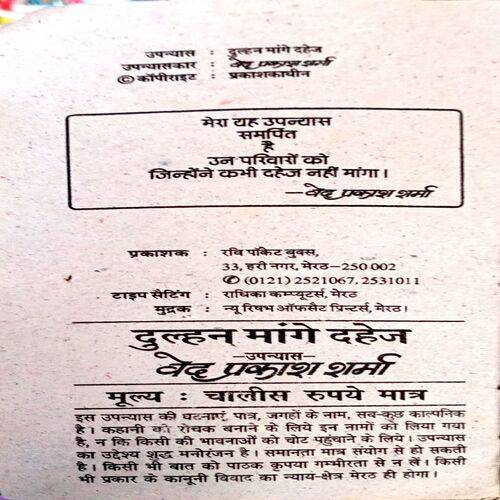 उपन्यास : दुल्हन मांगे दहेज
उपन्यासकार : वेद प्रकाश शर्मा
© कॉपीराइट : प्रकाशकाधीन
मेरा यह उपन्यास
समर्पित
है
उन परिवारों को
जिन्होंने कभी दहेज नहीं मांगा।
—वेद प्रकाश शर्मा
प्रकाशक : रवि पॉकेट बुक्स,
33, हरी नगर, मेरठ—250 002
✆ (0121) 2521067, 2531011
टाइप सैटिंग : राधिका कम्प्यूटर्स, मेरठ
मुद्रक : न्यू रिषभ ऑफसैट प्रिन्टर्स, मेरठ।
दुल्हन मांगे दहेज
—उपन्यास—
वेद प्रकाश शर्मा
मूल्य : चालीस रुपये मात्र
इस उपन्यास की घटनाएं, पात्र, जगहों के नाम, सब-कुछ काल्पनिक
है। कहानी को रोचक बनाने के लिये इन नामों को लिया गया
है, न कि किसी की भावनाओं को चोट पहुंचाने के लिये। उपन्यास
का उद्देश्य शुद्ध मनोरंजन है। समानता मात्र संयोग से हो सकती
है। किसी भी बात को पाठक कृपया गम्भीरता से न लें। किसी
भी प्रकार के कानूनी विवाद का न्याय-क्षेत्र मेरठ ही होगा।